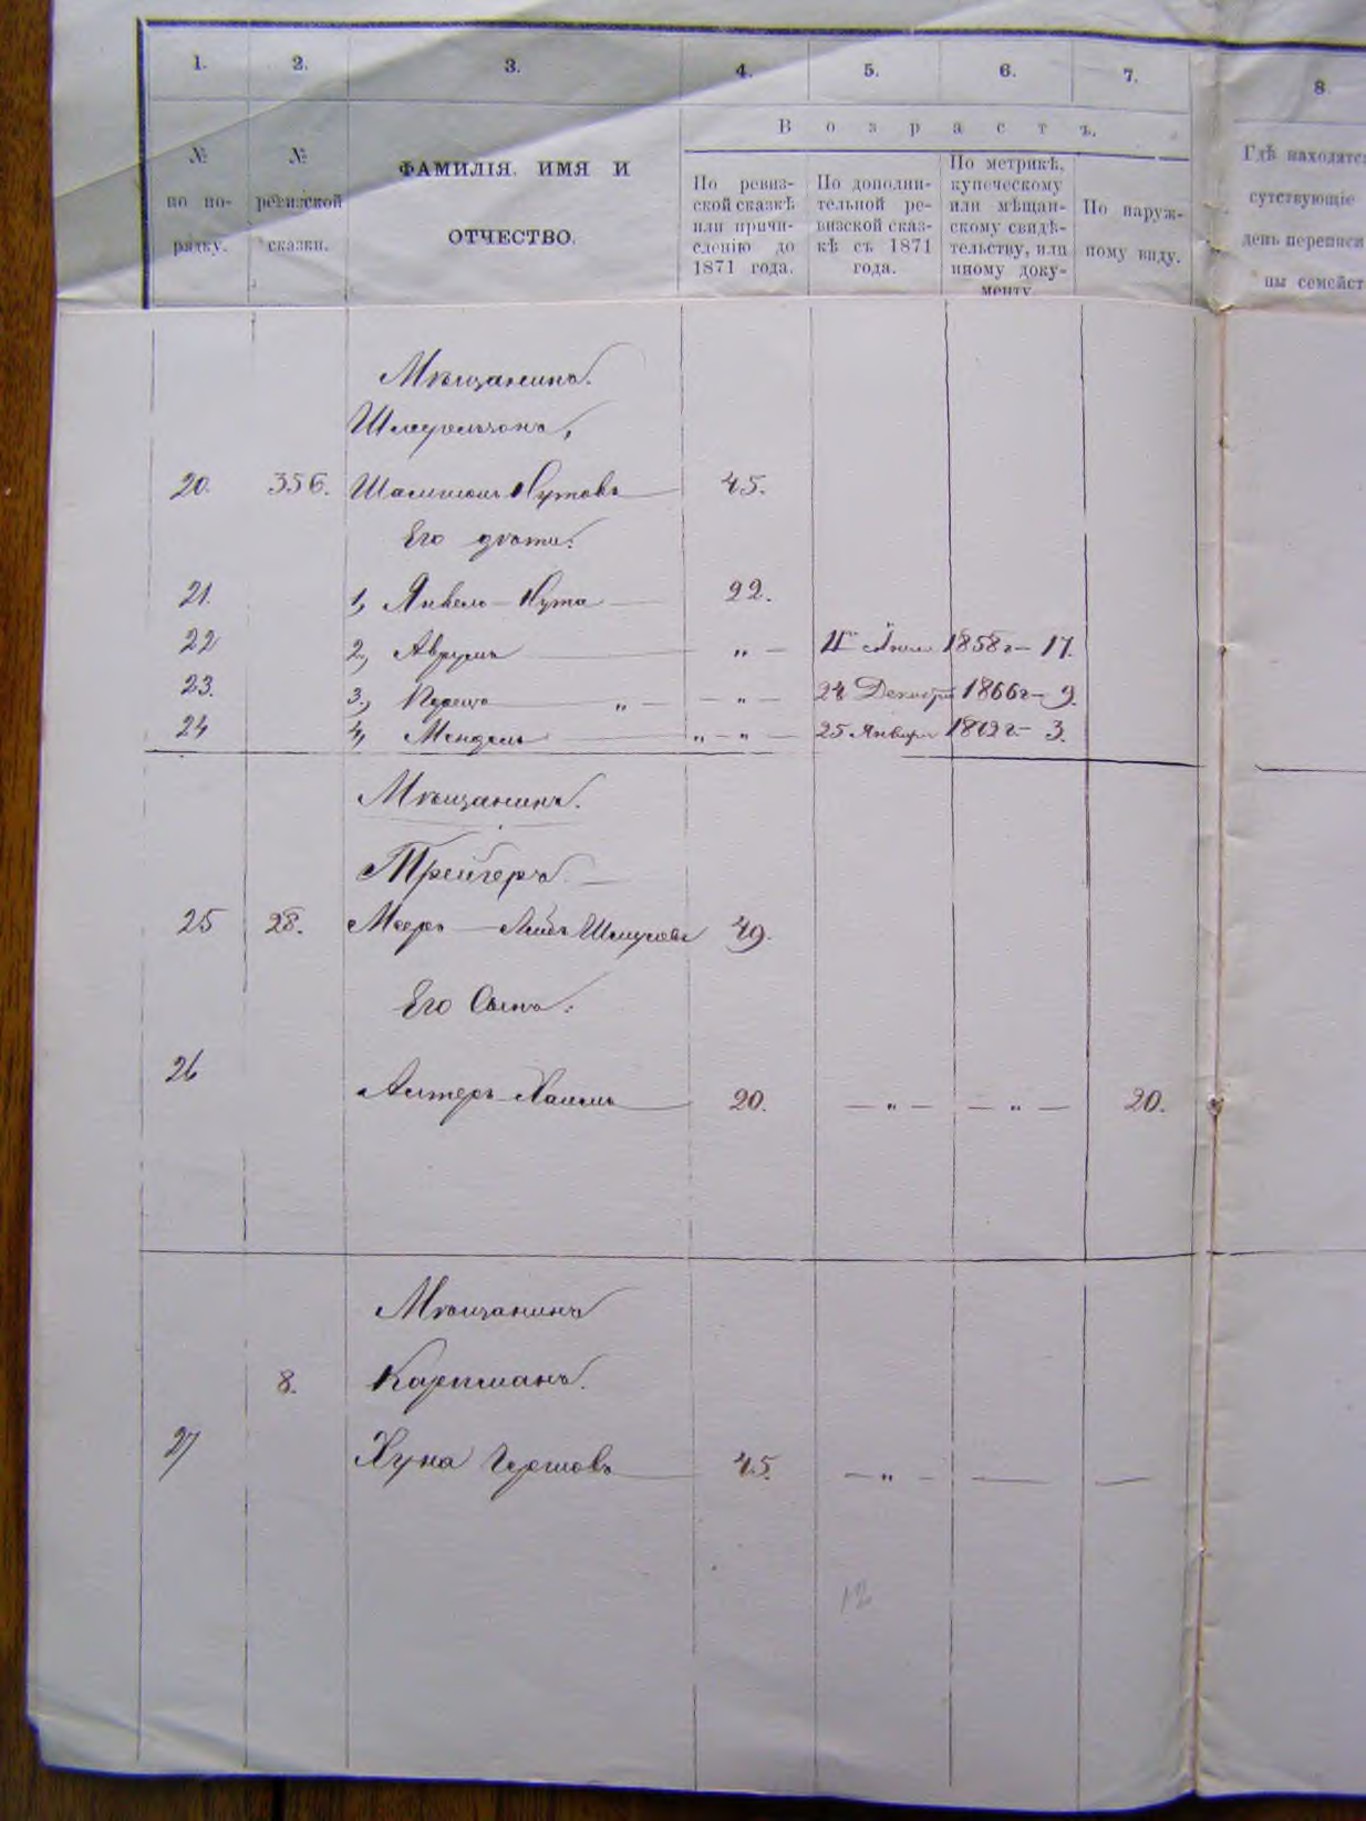 1. 2. 3. 4. 5. 6. 7. 8.
Возрастъ.
№ по по-рядку.
№ ревизской сказки.
ФАМИЛІЯ, ИМЯ И
ОТЧЕСТВО.
По ревиз-
ской сказкѣ
или причи-
сленію до
1871 года.
По дополни-
тельной ре-
визской сказ-
кѣ съ 1871
года.
По метрикѣ,
купеческому
или мѣщан-
скому свидѣ-
тельству, или
иному доку-
менту.
По наруж-
ному виду.
Гдѣ находятс
сутствующіе
день переписи
ны семейст
Мѣщанинъ.
20. 356. Нутовъ 45.
Его дѣти:
21. 1, Янкель-Нута 22.
22 2, Аврумъ „ 1858 г. 17.
23. 3, „ „ 24 Декабря 1866 г. 9.
24 4, Мендель „ „ 25 Января 1872 г. 3.
Мѣщанинъ.
Трейгеръ
25 28. Мееръ-Лейбъ Шмулевъ 49.
Его Сынъ:
26 Алтеръ-Хаимъ 20. „ „ 20.
Мѣщанинъ
8. Карпманъ.
27 Хуна Гершовъ 45. „
12